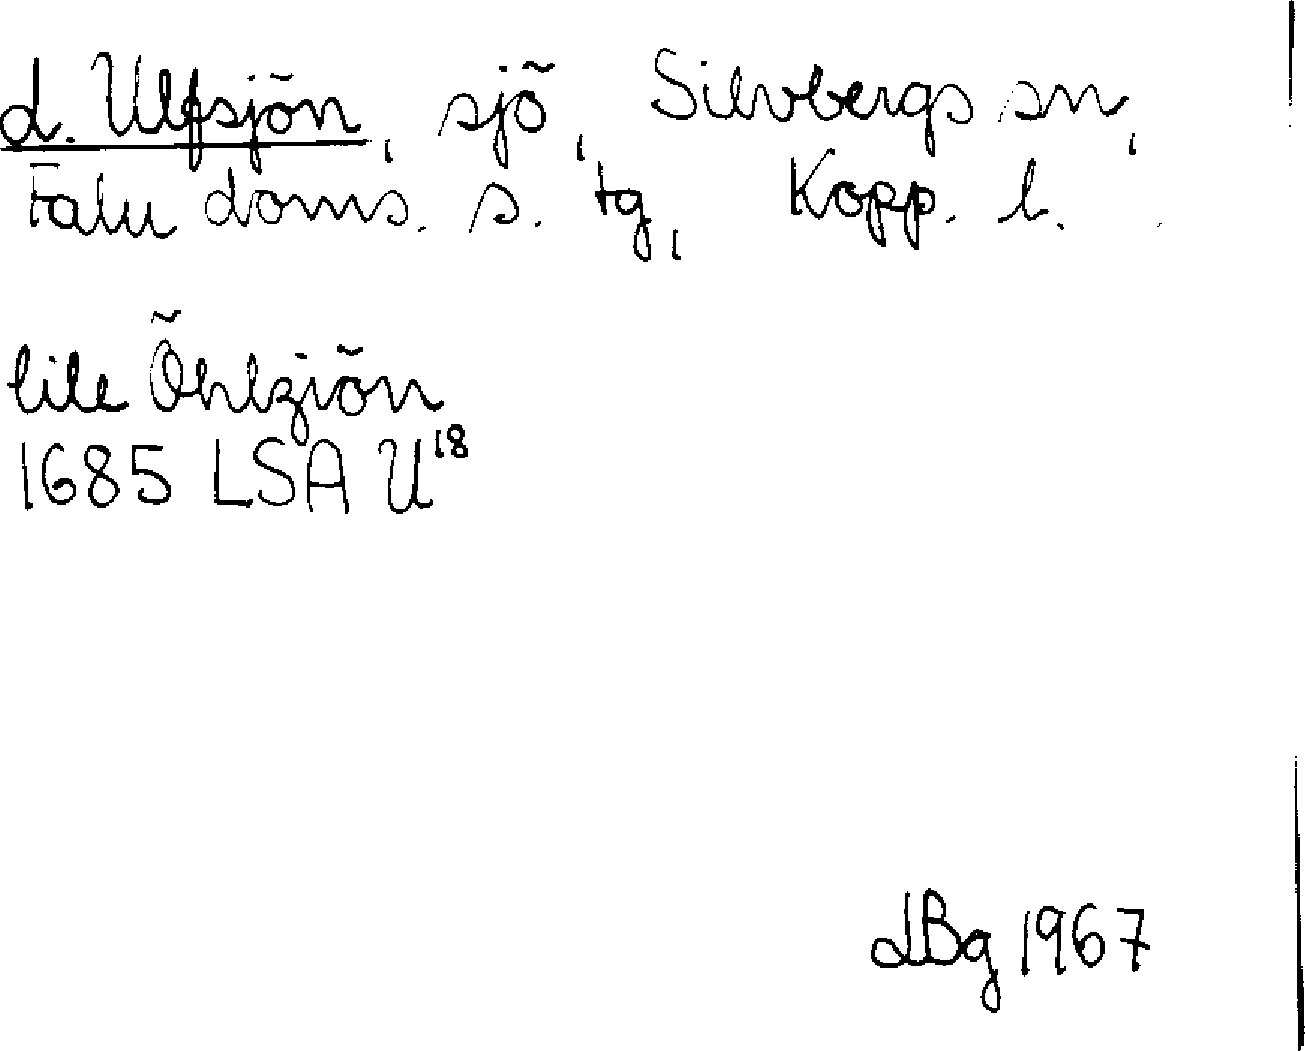 L. Ulfsjön, sjö, Silvbergs sn,
Falu doms. s. tg, Kopp. l.
lile Öhlziön
1685 LSA U18
LBg 1967